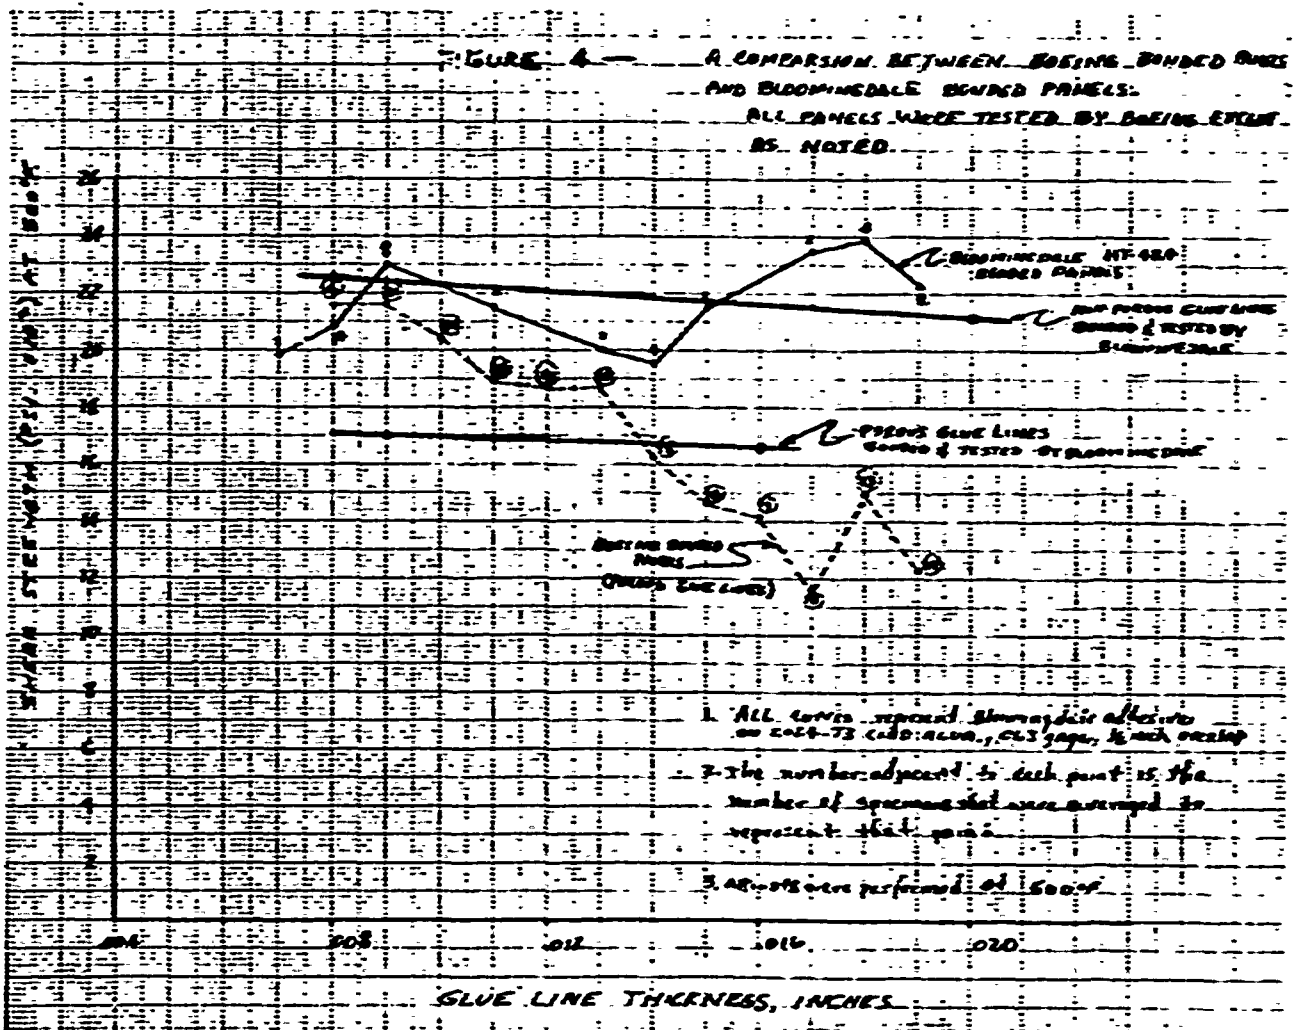 FIGURE 4 — A COMPARSION BETWEEN BOEING BONDED
AND BLOOMINGDALE BONDED PANELS.
ALL PANELS WERE TESTED BY BOEING EXCEPT
AS NOTED
SHEAR STRENGTH AT 500°F
26
24
22
20
18
16
14
12
10
8
6
4
2
BLOOMINGDALE HT-424
BONDED PANELS
NON POROUS GLUE LINES
BONDED & TESTED BY
BLOOMINGDALE
POROUS GLUE LINES
BONDED & TESTED BY BLOOMINGDALE
BOEING BONDED
PANELS
(POROUS GLUE LINES)
1. ALL curves represent Bloomingdale adhesives
on 2024-T3 CLAD ALUM., overlap
2. The number adjacent to each point is the
number of specimens that were averaged to
represent that point
3. were performed at 500°F
.004 .008 .012 .016 .020
GLUE LINE THICKNESS, INCHES